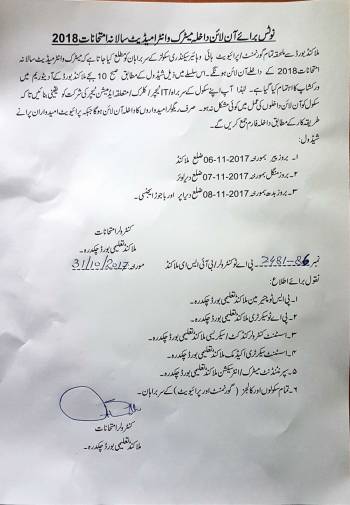 نوٹس برائے آن لائن داخلہ میٹرک و انٹرامیڈیٹ سالانہ امتحانات 2018
ملاکنڈ بورڈ سے ملحقہ تمام گورنمنٹ / پرائیویٹ ہائی و ہائیر سیکنڈری سکولز کے سربراہان کو مطلع کیا جاتا ہے کہ میٹرک و انٹرامیڈیٹ سالانہ
امتحانات 2018 کے داخلے آن لائن ہونگے۔ اس سلسلے میں ذیل شیڈول کے مطابق صبح 10 بجے ملاکنڈ بورڈ کے آڈیٹوریم میں
ورکشاپ کا اہتمام کیا گیا ہے۔ لہذا آپ اپنے سکول کے سربراہ / IT ٹیچر / کلرک / متعلقہ ایڈمیشن ٹیچر کی شرکت کو یقینی بنائیں تاکہ
سکول کو آن لائن داخلوں کی عمل میں کوئی مشکل نہ ہو۔ صرف ریگولر امیدواروں کا داخلہ آن لائن ہوگا جبکہ پرائیویٹ امیدواران پرانے
طریقہ کار کے مطابق داخلہ فارم جمع کریں گے۔
شیڈول:
۱۔ بروز پیر بمورخہ 2017-11-06 ضلع ملاکنڈ
۲۔ بروز منگل بمورخہ 2017-11-07 ضلع دیرلوئر
۳۔ بروز بدھ بمورخہ 2017-11-08 ضلع دیراپر اور باجوڑ ایجنسی۔
کنٹرولر امتحانات
ملاکنڈ تعلیمی بورڈ چکدرہ۔
نمبر 2481-86 پی اے ٹو کنٹرولر / بی آئی ایس ای ملاکنڈ مورخہ 31/10/2017
نقول برائے اطلاع:
۱۔ پی ایس ٹو چیئرمین ملاکنڈ تعلیمی بورڈ چکدرہ۔
۲۔ پی اے ٹو سیکرٹری ملاکنڈ تعلیمی بورڈ چکدرہ۔
۳۔ اسسٹنٹ کنٹرولر کنڈکٹ / سیکریسی ملاکنڈ تعلیمی بورڈ چکدرہ۔
۴۔ اسسٹنٹ سیکرٹری اکیڈمک ملاکنڈ تعلیمی بورڈ چکدرہ۔
۵۔ سپرنٹنڈنٹ میٹرک / انٹر سیکشن ملاکنڈ تعلیمی بورڈ چکدرہ۔
۶۔ تمام سکولوں اور کالجز ( گورنمنٹ اور پرائیویٹ ) کے سربراہان۔
کنٹرولر امتحانات
ملاکنڈ تعلیمی بورڈ چکدرہ۔